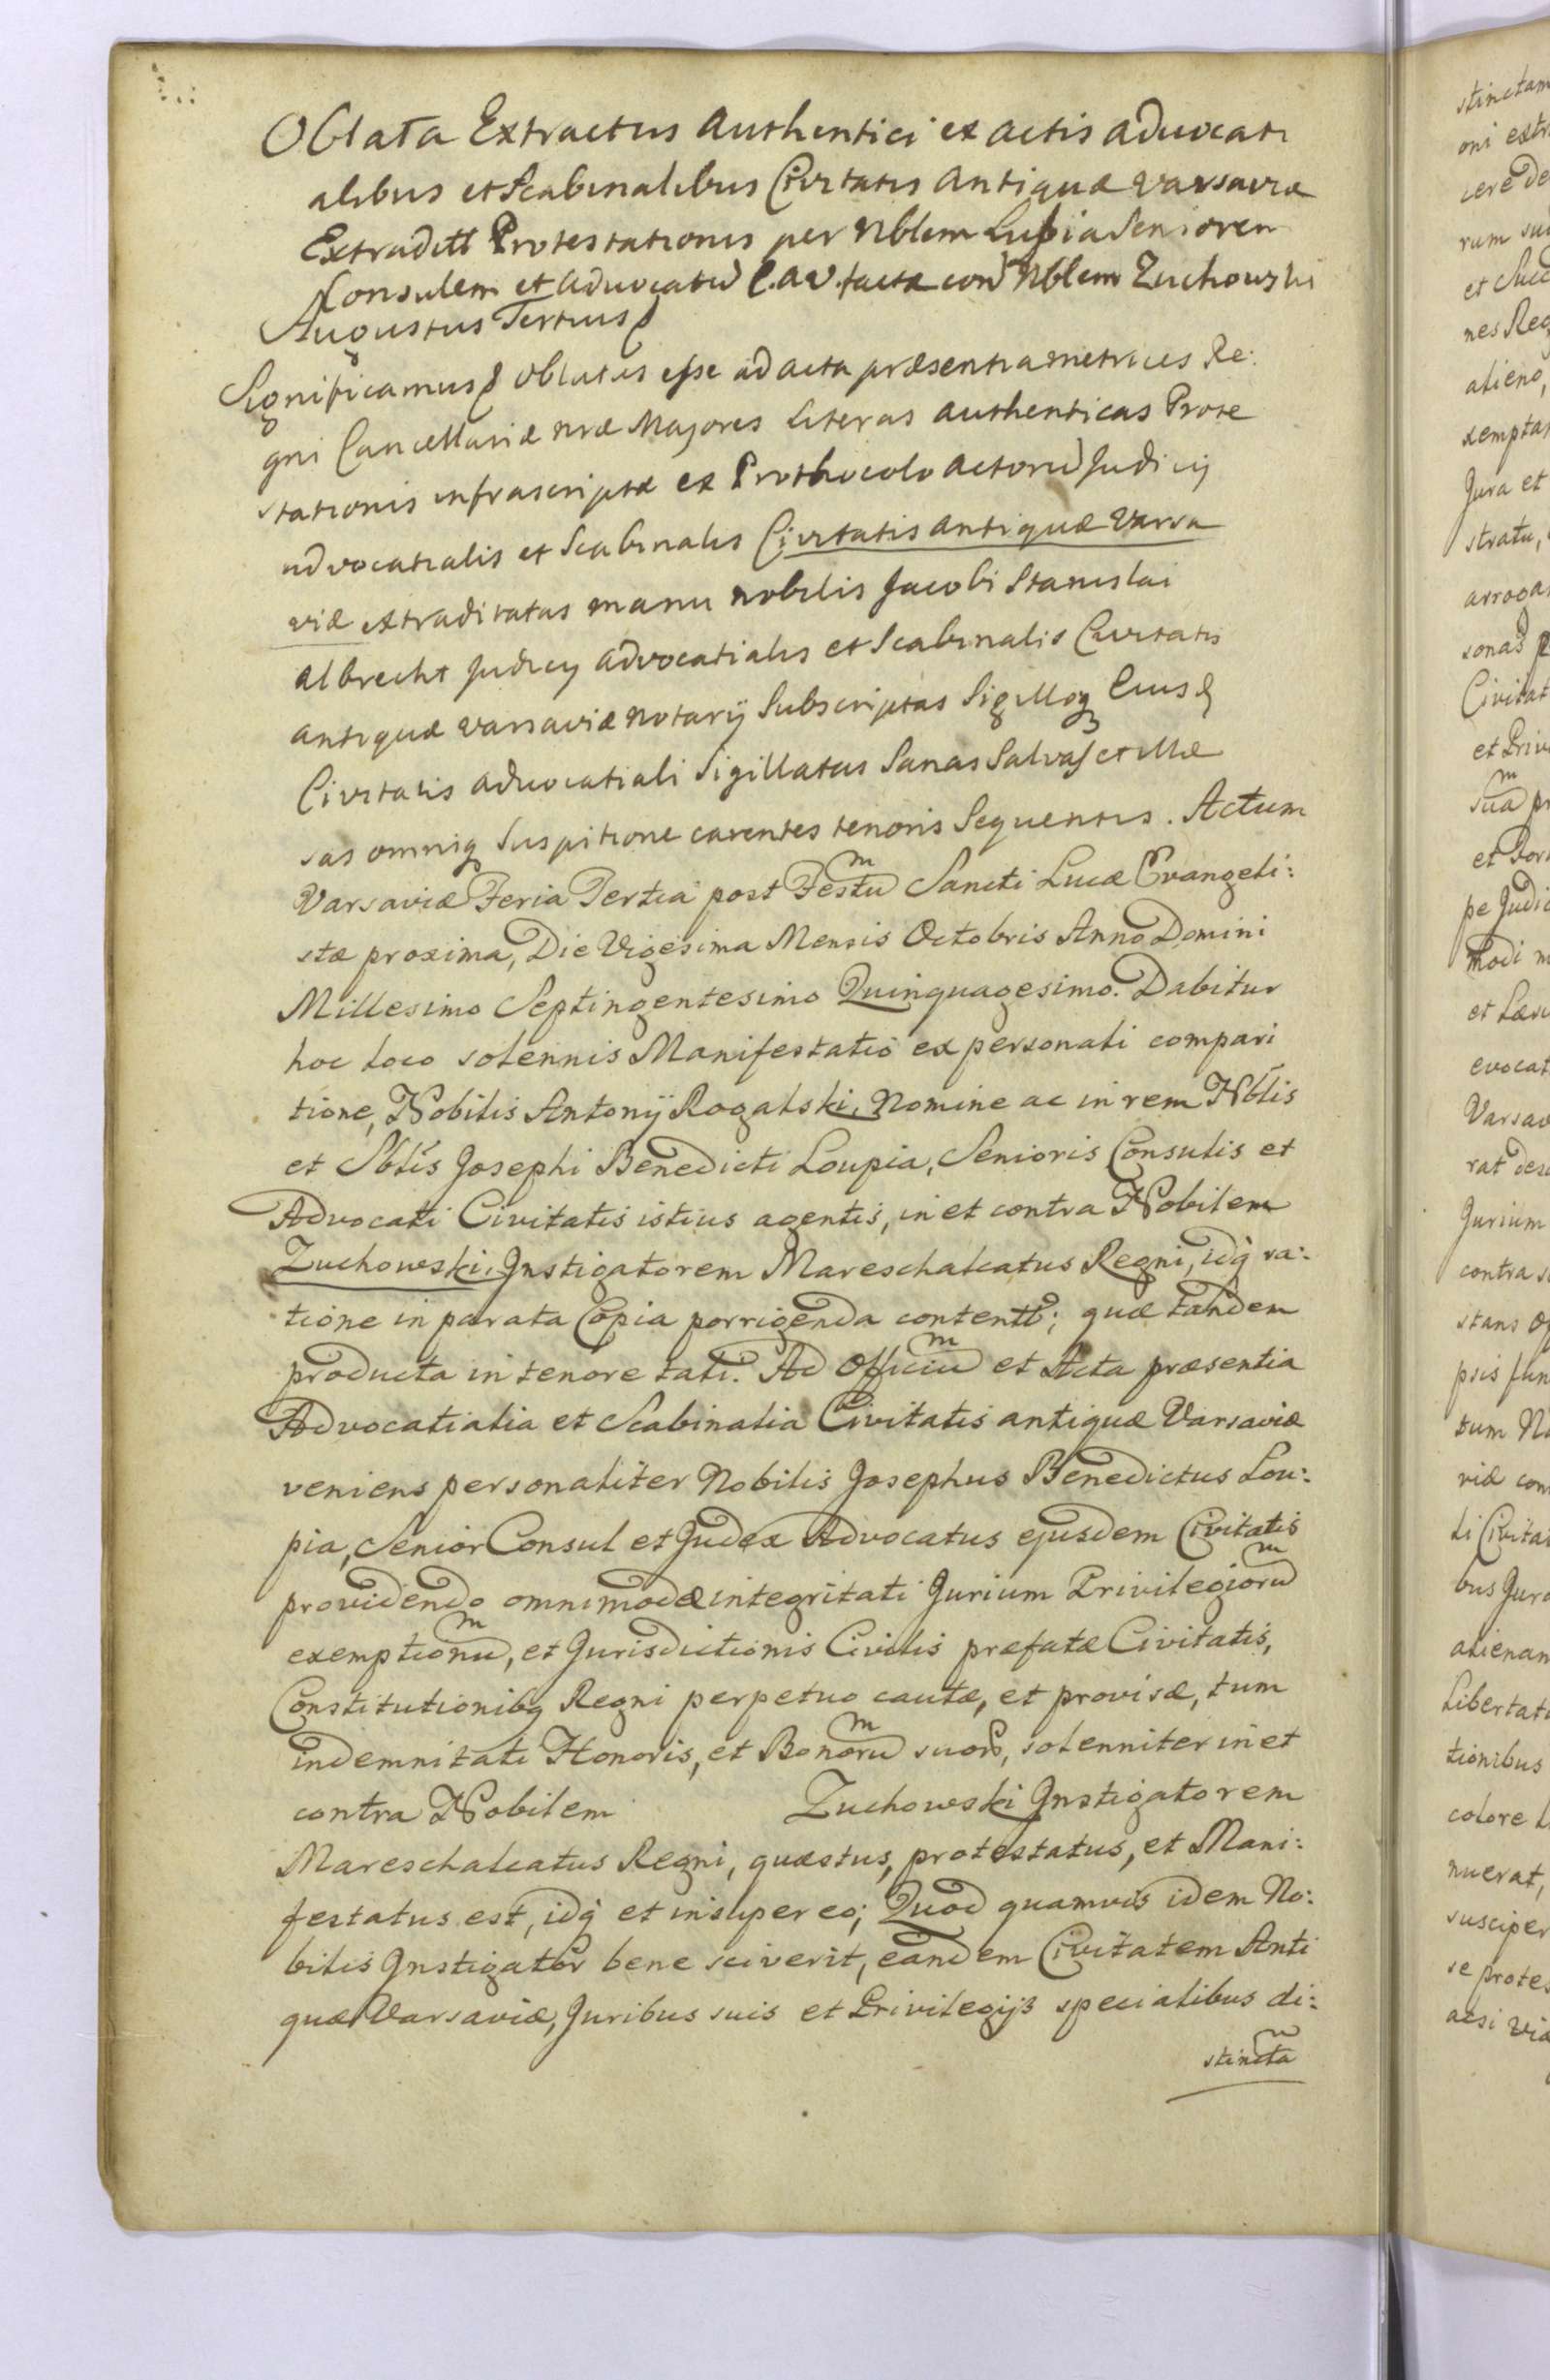 Oblata Extractus Authentici ex actis advocati
alibus et Scabinalibus Civitatis Antiquæ Varsaviæ
Extradett Protestationis per Nblem Lupia Seniorem
Consulem et Advocatu C.A.V. factæ con Nblem Zuchowski
Augustus Tertius
Significamus Oblatas esse ad acta præsentia metrices Re:
gni Cancellariæ nræ Majoris Literas authenticas Prote
stationis infrascriptæ ex Prothocolo actoru Judicij
advocatialis et Scabinalis Civitatis antiquæ Varsa
viæ extraditatas manu nobilis Jacobi Stanislai
Albrecht Judicij advocatialis et Scabinalis Civitatis
antiquæ Varsaviæ Notarij Subscriptas Sigilloq Eiusd
Civitatis advocatiali Sigillatas Sanas Salvas et illæ
sas omniq Suspitione carentes tenoris Sequentis. Actum
Varsaviæ Feria Tertia post Festu͠m Sancti Lucæ Evangeli:
stæ proxima, Die Vigesima Mensis Octobris Anno Domini
Millesimo Septingentesimo Quinquagesimo. Dabitur
hoc loco solennis Manifestatio ex personali compari
tione, Nobilis Antonij Rogalski, Nomine ac in rem Nblis
et Sblis Josephi Benedicti Loupia, Senioris Consulis et
Advocati Civitatis istius agentis, in et contra Nobilem
Zuchowski, Instigatorem Mareschalcatus Regni, idq ra:
tione in parata Copia porrigenda contentt; quæ tandem
producta in tenore tali. Ad Officiu͠m et Acta præsentia
Advocatialia et Scabinalia Civitatis antiquæ Varsaviæ
veniens personaliter Nobilis Josephus Benedictus Lou:
pia, Senior Consul et Judex Advocatus ejusdem Civitatis
providendo omnimodæ integritati Jurium Privilegioru͠m
exemptionu͠m, et Jurisdictionis Civilis præfatæ Civitatis,
Constitutionibq Regni perpetuo cautæ, et provisæ, tum
indemnitati Honoris, et Bonoru͠m suor, solenniter in et
contra Nobilem Zuchowski Instigatorem
Mareschalcatus Regni, quæstus, protestatus, et Mani:
festatus est, idq et in super eo; Quod quamvis idem No:
bilis Instigator bene sciverit, eandem Civitatem Anti
quæ Varsaviæ, Juribus suis et Privilegijs specialibus di:
stincta͠m